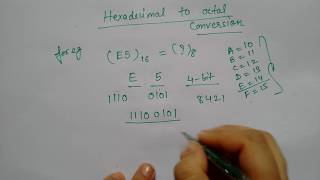 Hexadecimal to octal
Conversion
for eg (E5)₁₆ = (?)₈
A = 10
B = 11
C = 12
D = 13
E = 14
F = 15
E 5 4-bit
1110 0101 8421
1110 0101